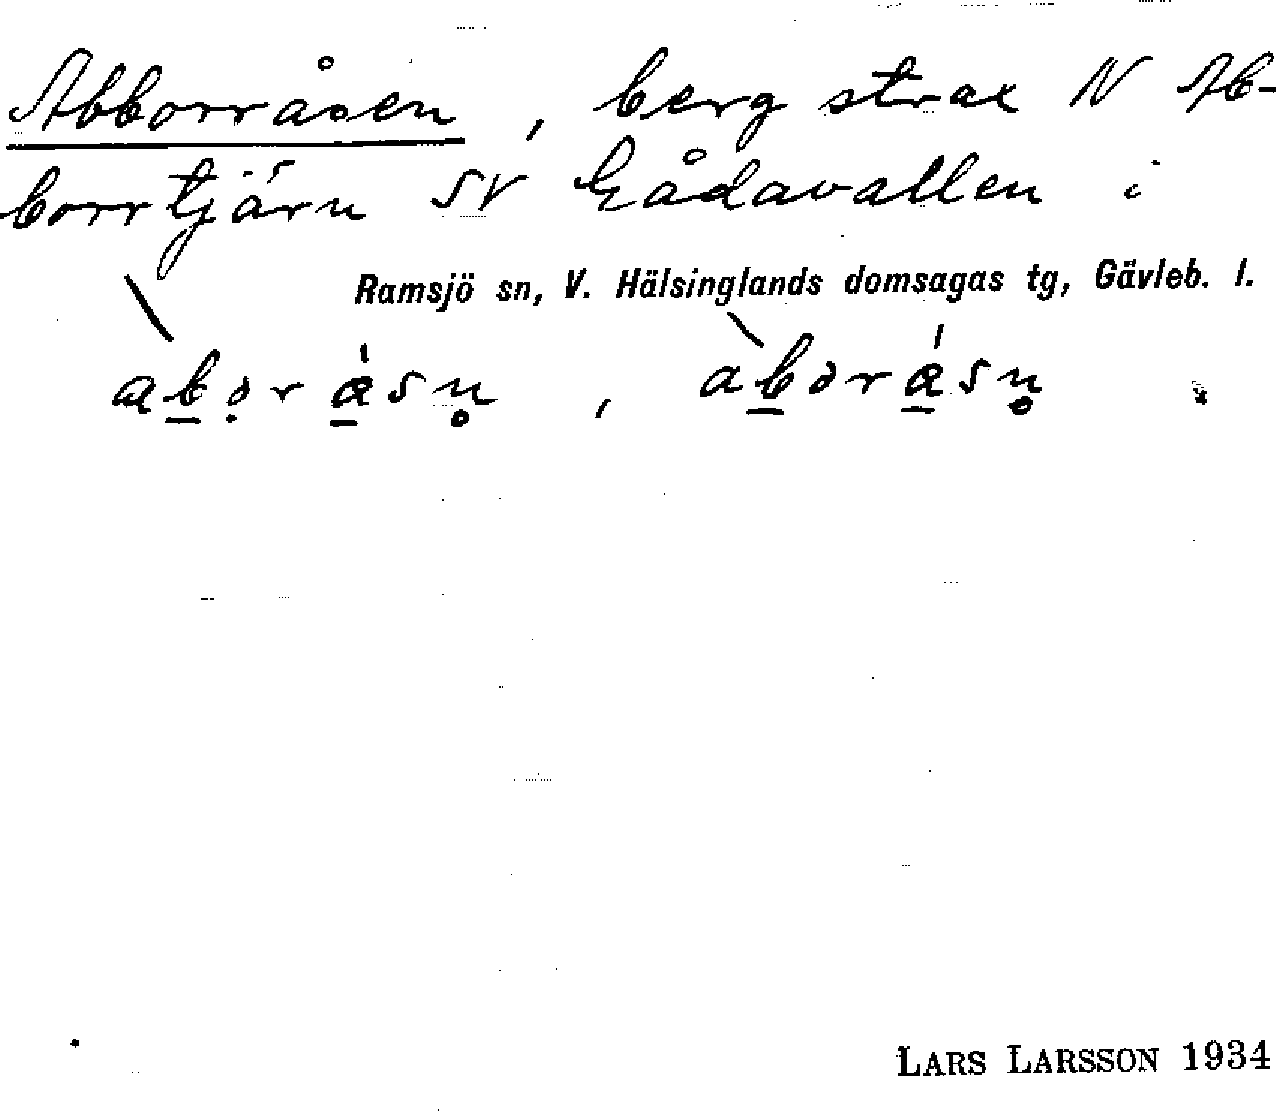 Abborråsen, berg strax N Ab-
borrtjärn SV Gådavallen i
Ramsjö sn, V. Hälsinglands domsagas tg, Gävleb. l.
LARS LARSSON 1934